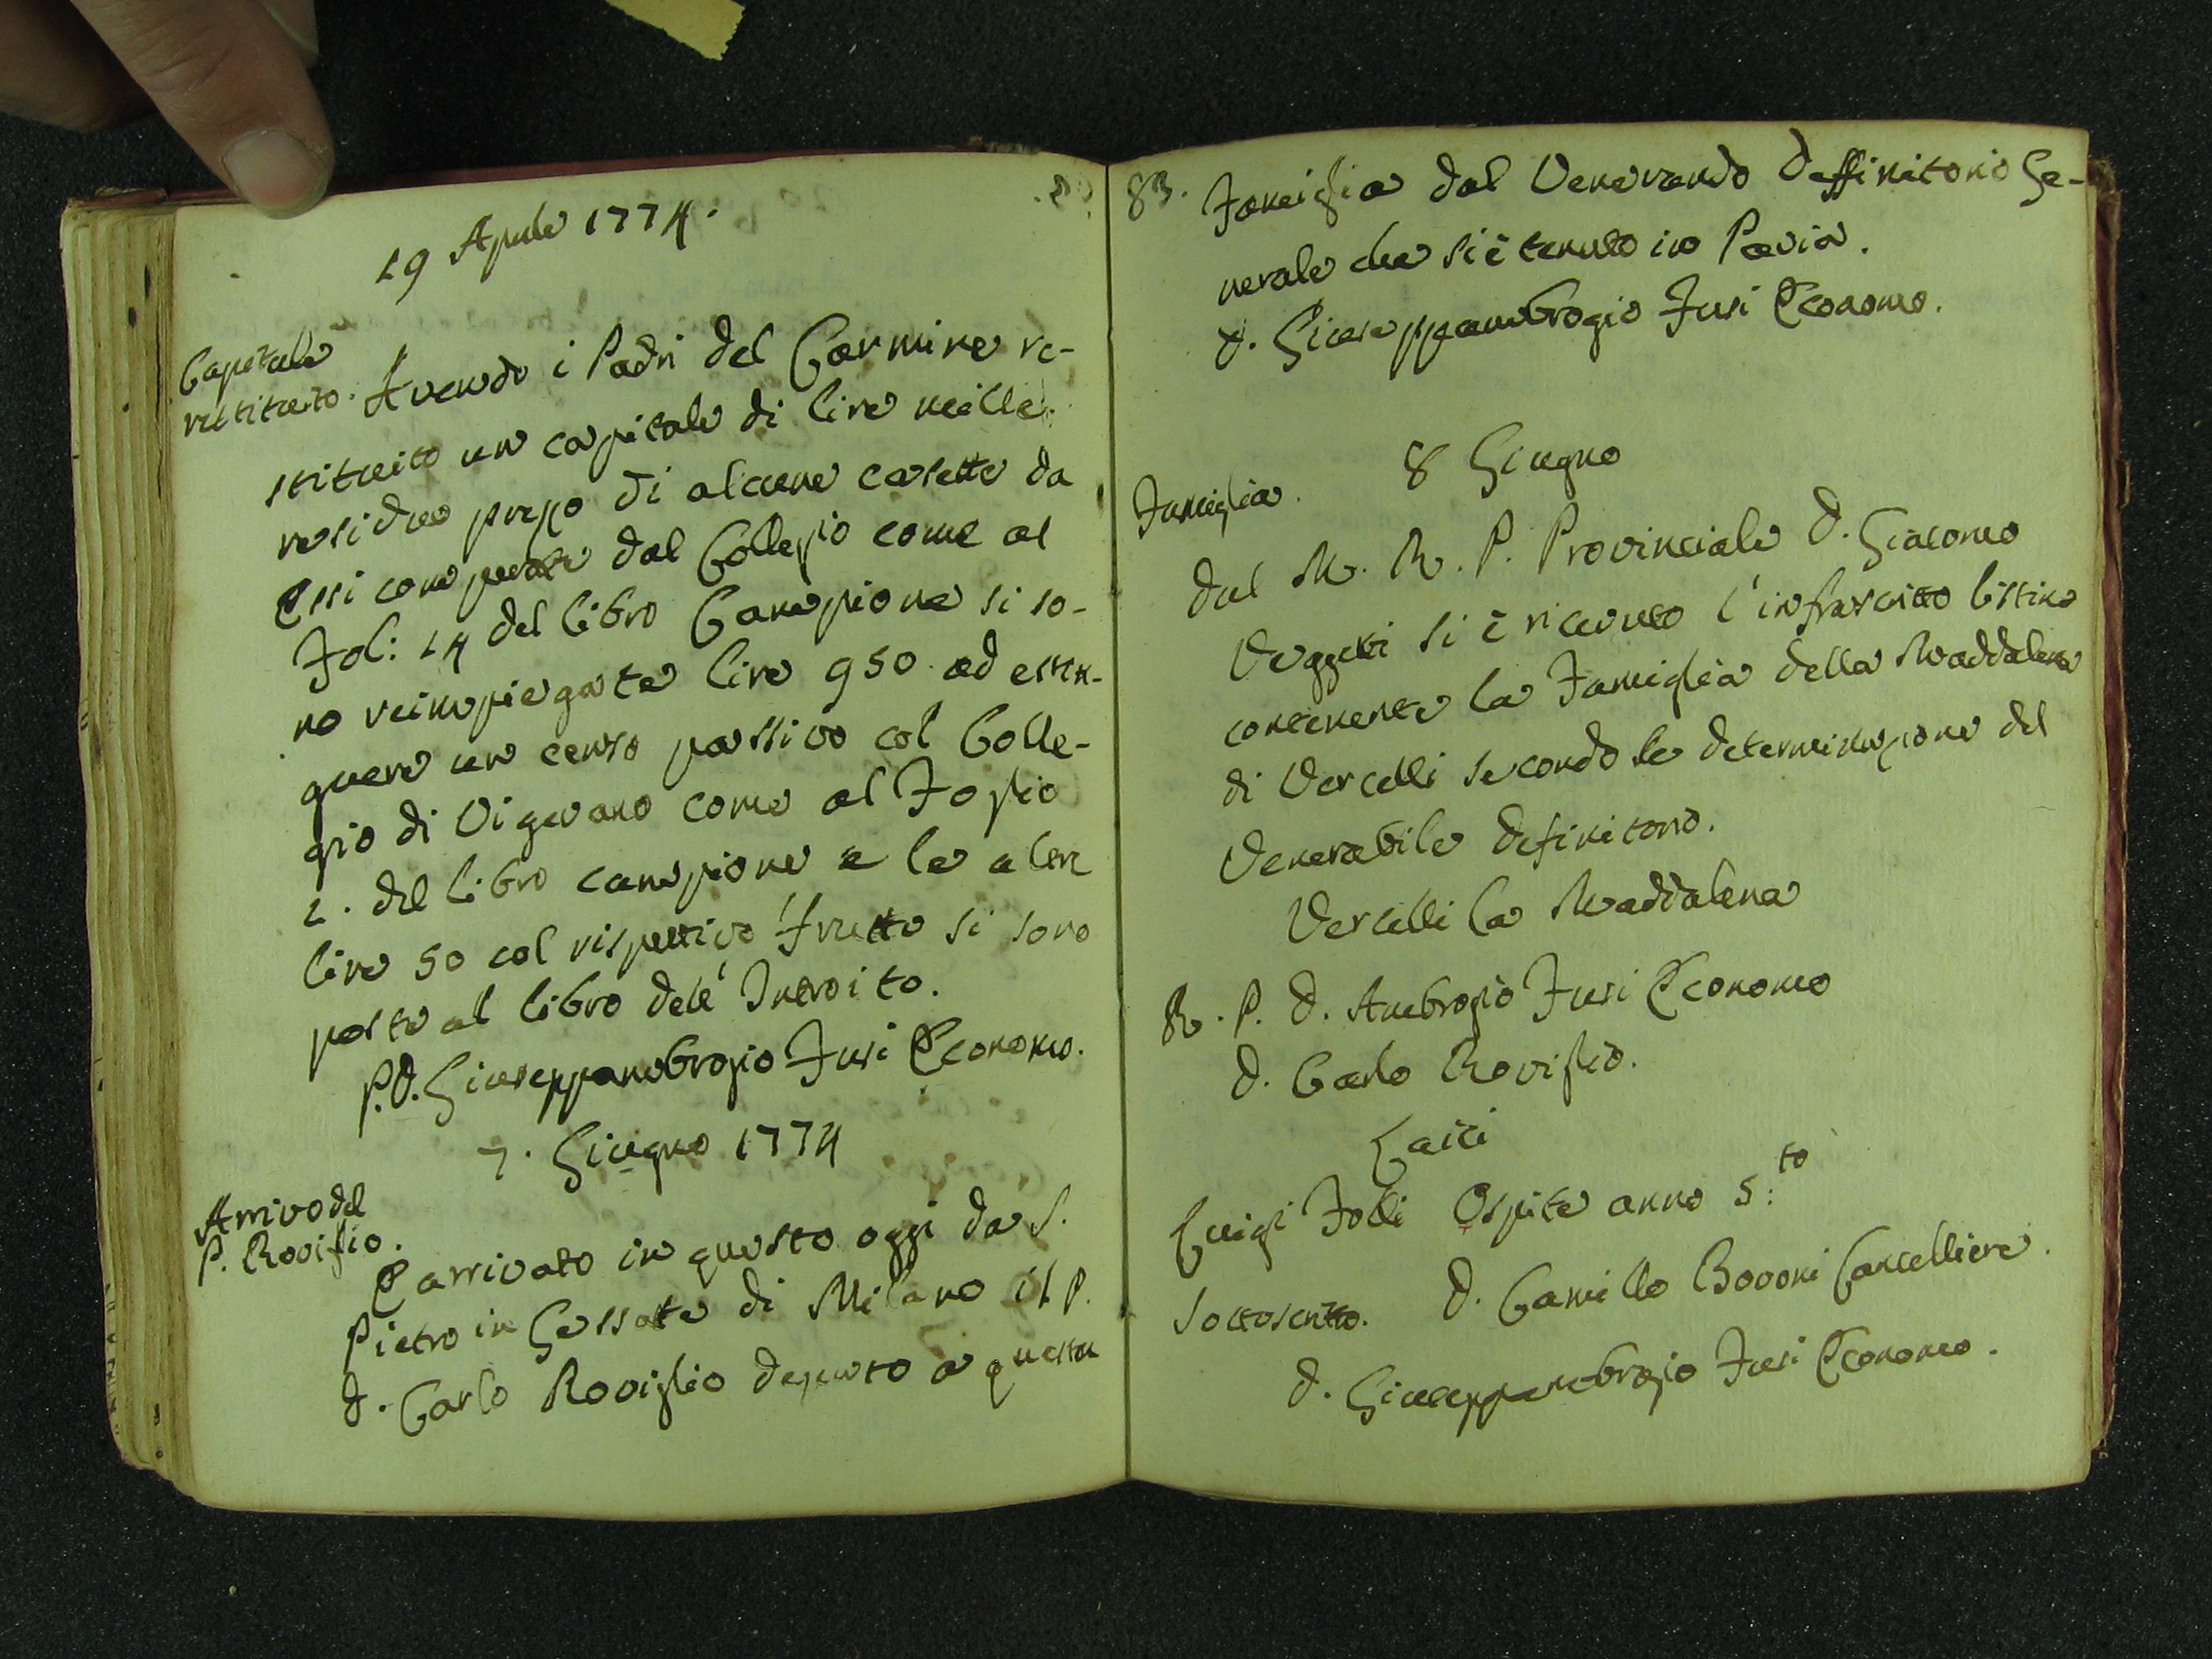 19 Aprile 1774.
Capitale
restituito. Avendo i Padri del Carmine re-
stituito un capitale di lire mille
residuo prezzo di alcune casette da
Essi comperate dal Collegio come al
Fol: 14 del libro Campione si so-
no reimpiegate lire 950 ad estin-
guere un censo passivo col Colle-
gio di Vigevano come al Foglio
2. del libro campione e le altre
lire 50 col rispettivo frutto si sono
poste al libro dell'Introito.
P. D. Giuseppambrogio Fusi Economo.
7. Giugno 1774
Arrivo del
P. Roviglio.
E arrivato in questo oggi da S.
Pietro in Gessate di Milano il P.
D. Carlo Roviglio deputato a questa
83.
Famiglia dal Venerando Deffinitorio Ge-
nerale che si è tenuto in Pavia.
D. Giuseppambrogio Fusi Economo.
8 Giugno
Famiglia.
Dal M. R. P. Provinciale D. Giacomo
si è ricevuto l'infrascritto listino
contenente la Famiglia della Maddalena
di Vercelli secondo le determinazione del
Venerabile Definitorio.
Vercelli la Maddalena
R. P. D. Ambrogio Fusi Economo
D. Carlo Roviglio.
Laici
Luigi Folli Ospite anno 5:to
Sottoscritto. D. Camillo Bovoni Cancelliere.
D. Giuseppambrogio Fusi Economo.